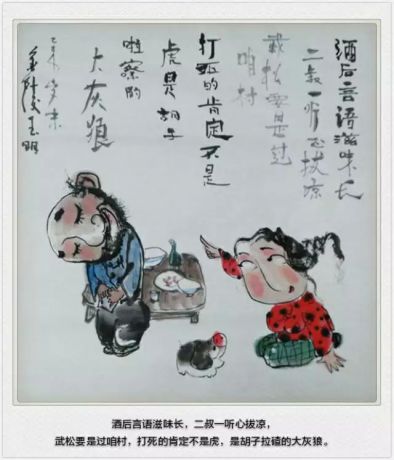 酒后言语滋味长
二叔一听心拔凉
武松要是过
咱村
打死的肯定不是
虎是胡子
啦察的
大灰狼
酒后言语滋味长，二叔一听心拔凉，
武松要是过咱村，打死的肯定不是虎，是胡子拉碴的大灰狼。